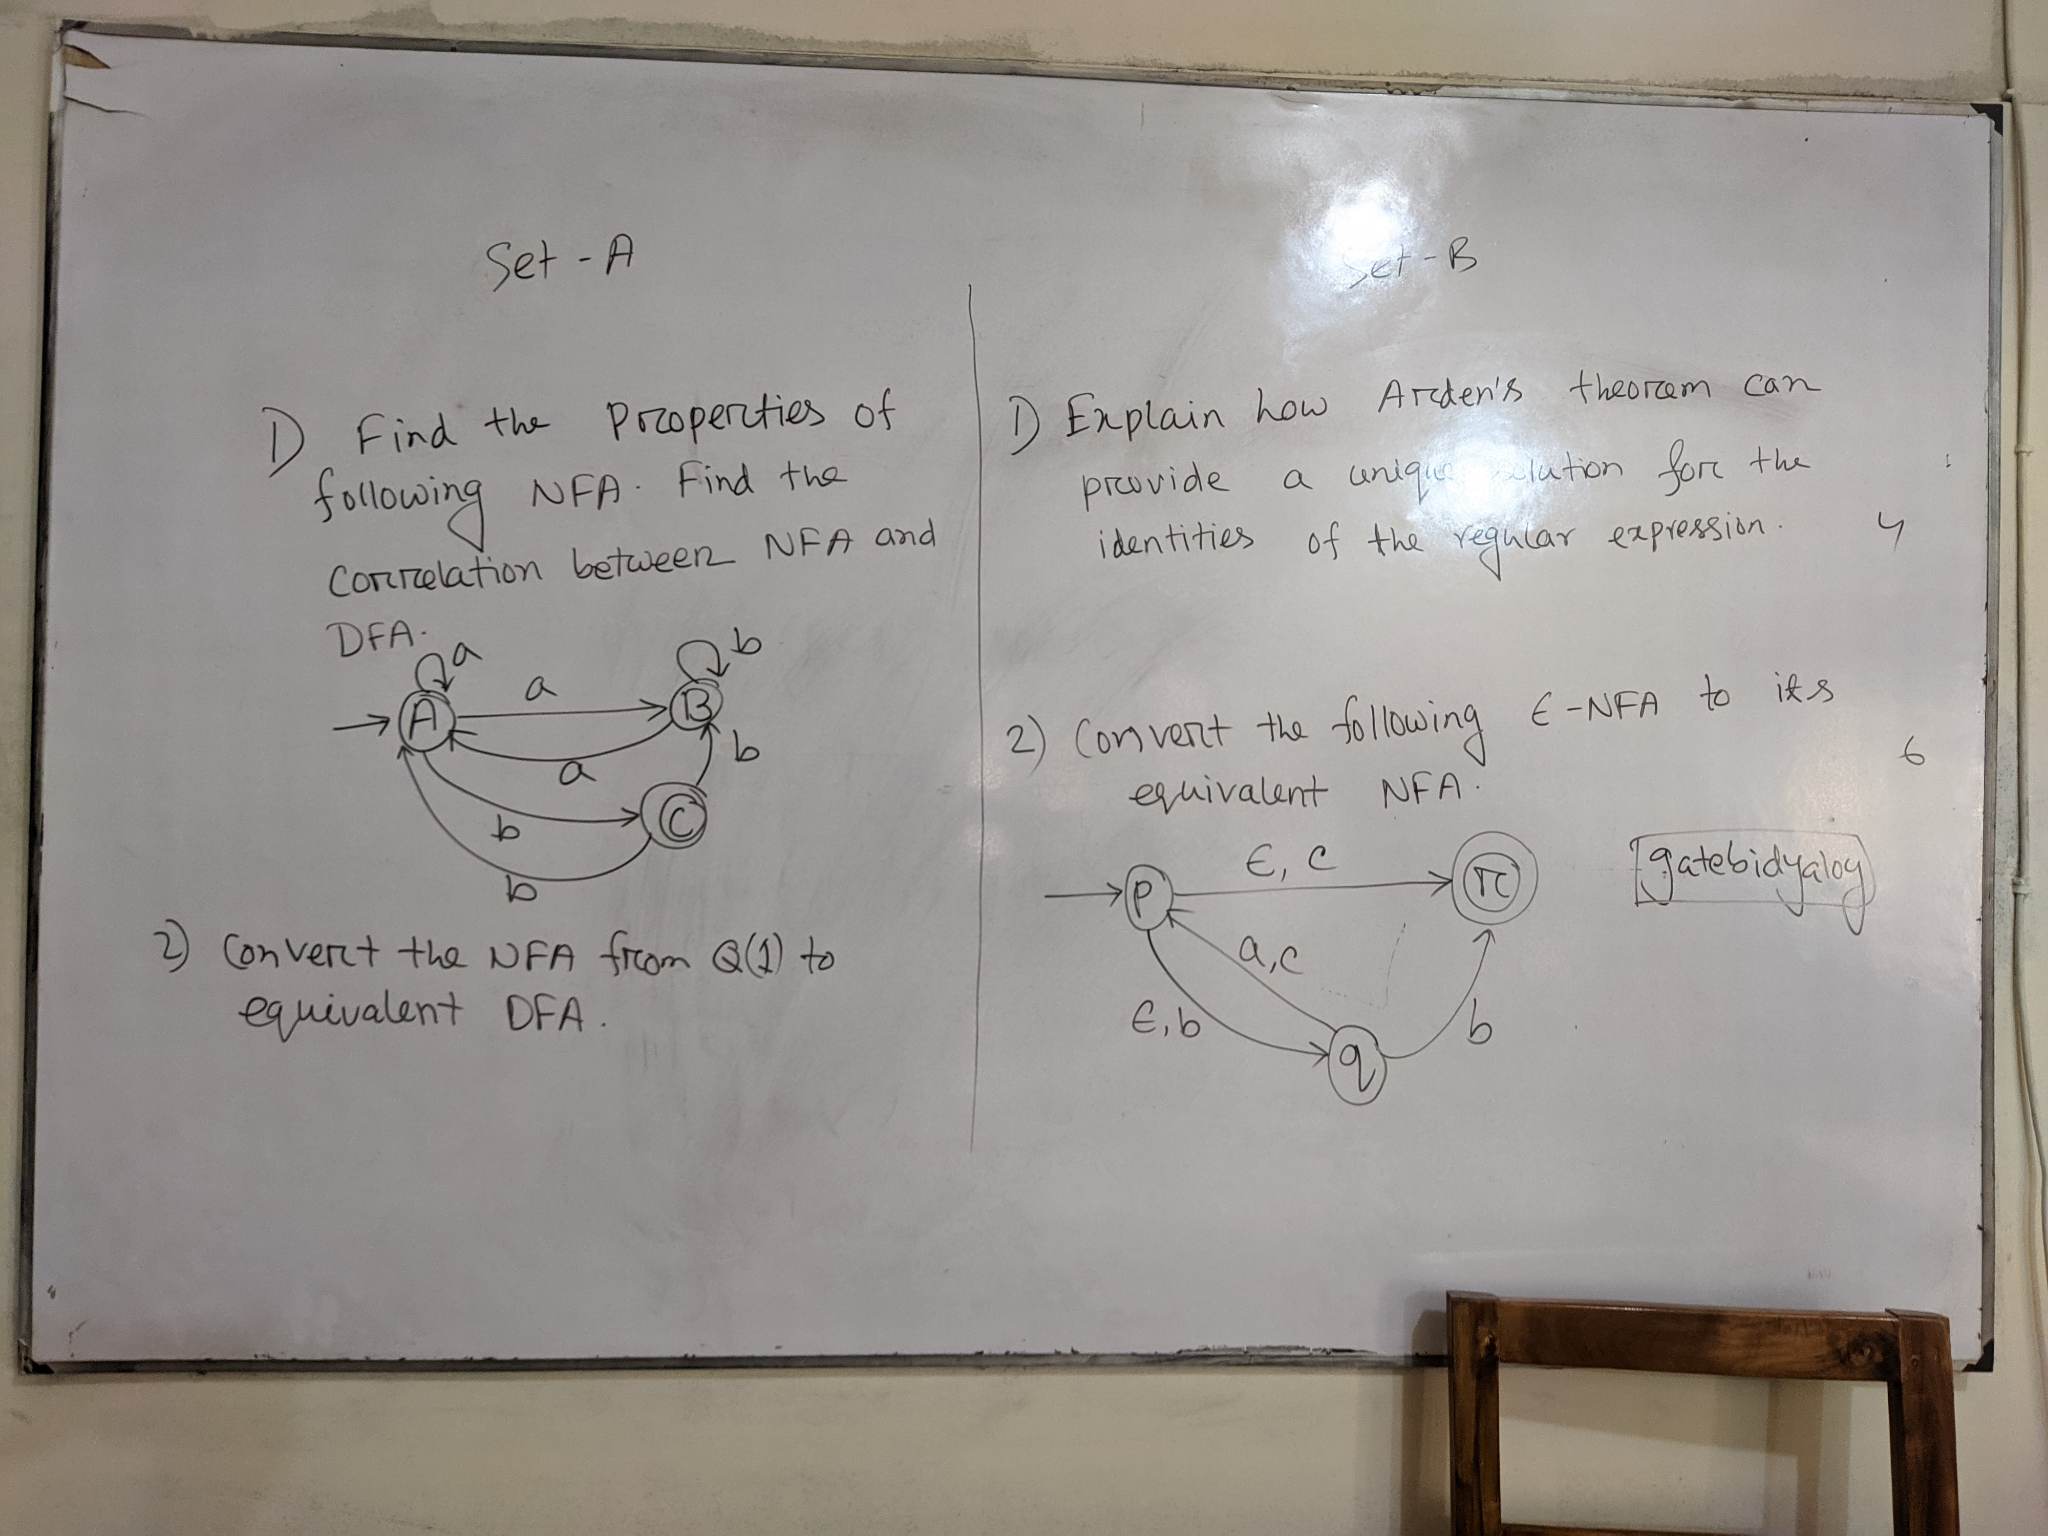 Set - A
1) Find the Properties of
following NFA. Find the
Correlation between NFA and
DFA.
a
b
a
A
B
a
b
b
C
b
2) Convert the NFA from Q(1) to
equivalent DFA.
Set - B
1) Explain how Arden's theorem can
provide a unique solution for the
identities of the regular expression. 4
2) Convert the following ϵ-NFA to its
equivalent NFA. 6
ϵ, c
p
r
gatebidyalog
a,c
ϵ,b
b
q